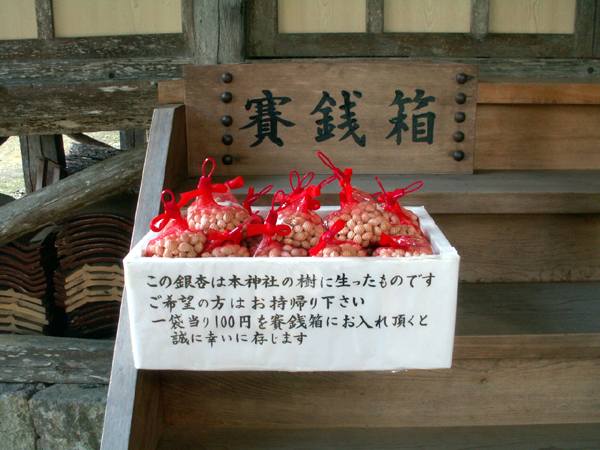 賽銭箱
この銀杏は本神社の樹に生ったものです
ご希望の方はお持帰り下さい
一袋当り100円を賽銭箱にお入れ頂くと
誠に幸いに存じます